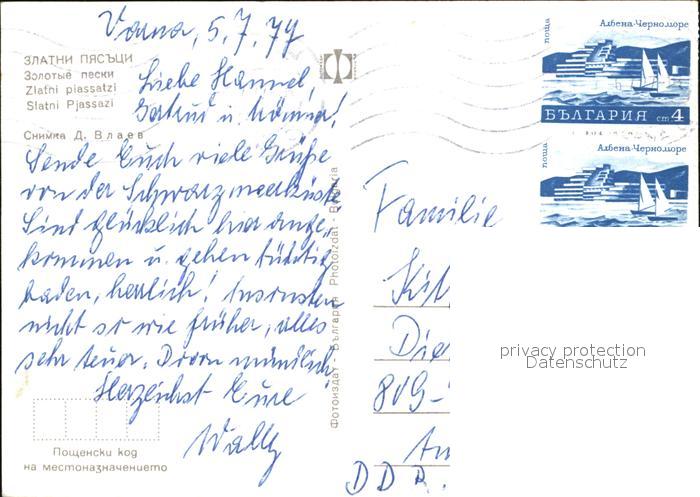 Varna, 5.7.79
ЗЛАТНИ ПЯСЪЦИ
Золотые пески
Zlatni piassatzi
Slatni Pjassazi
Снимка Д. Влаев
Liebe Hannel,
u.
Sende Euch viele Grüße
von der Schwarzmeerküste
Sind glücklich hier ange-
kommen u. gehen tüchtig
baden, herrlich! Ansonsten
nicht so wie früher, alles
sehr teuer. Davon mündlich
Herzlichst Eure
Wally
Пощенски код
на местоназначението
Фотоиздат · България Photoizdat · Bulgaria
поща Албена-Черноморе
БЪЛГАРИЯ ст 4
поща Албена-Черноморе
Familie
Kit
Die
809-
An
DDR.
privacy protection
Datenschutz